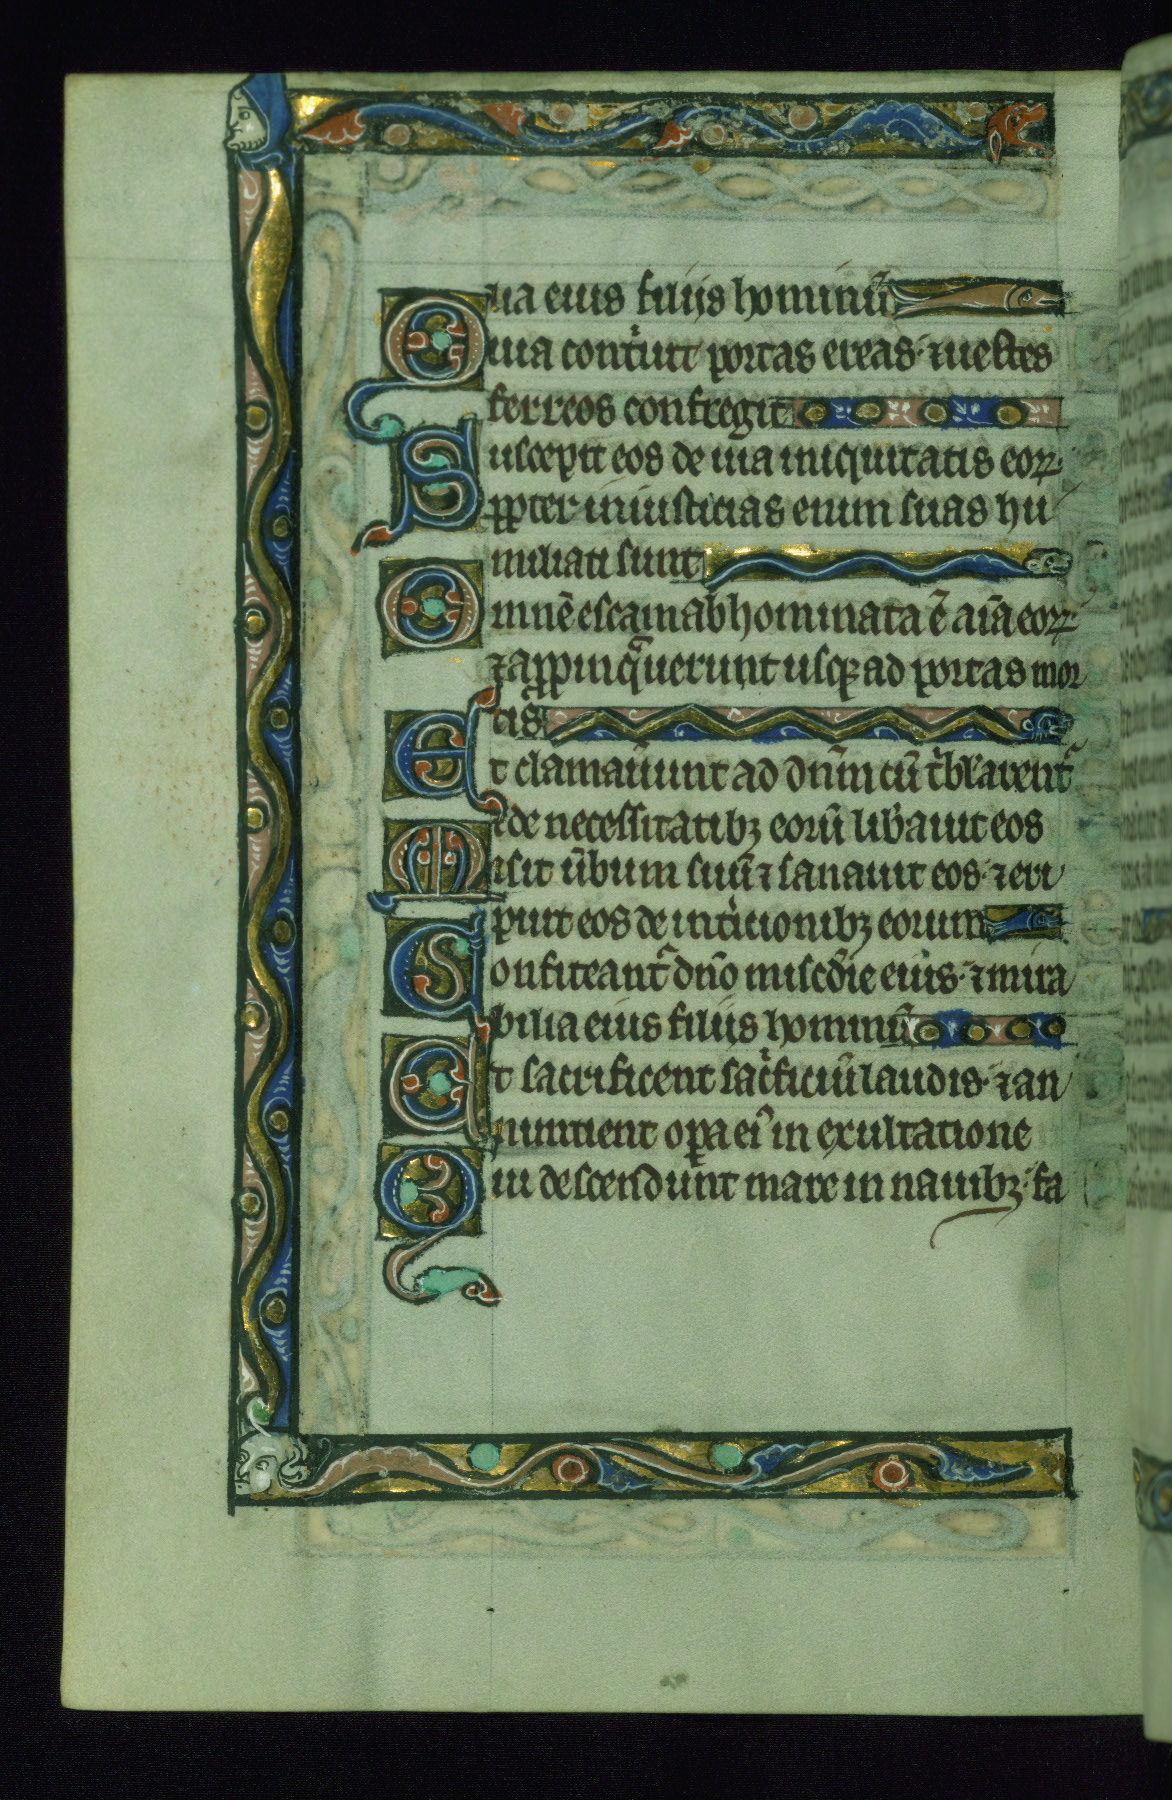 lia eius filijs hominũ
Quia cont'uit portas ereas· ⁊ uectes
ferreos confregit
Suscepit eos de uia iniquitatis eoꝝ·
ꝓpter iniusticias enim suas hu
miliati sunt
Omnẽ escam abhominata ẽ aĩa eoꝝ·
⁊ apꝓpinq̃uerunt usqꝫ ad portas mor
tis
Et clamauũnt ad dñm cũ t'bl'arent᷑
⁊ de necessitatibꝫ eorũ lib'auit eos
Misit ũbum suũ ⁊ sanauit eos· ⁊ eri
puit eos de int'itionibꝫ eorum
Confiteant᷑ dño miscd'ie eius· ⁊ mira
bilia eius filijs hominũ
Et sacrificent sac'ficiũ laudis· ⁊ an
nuntient oꝑa ei᷒ in exultatione
Qui descendunt mare in nauibꝫ· fa